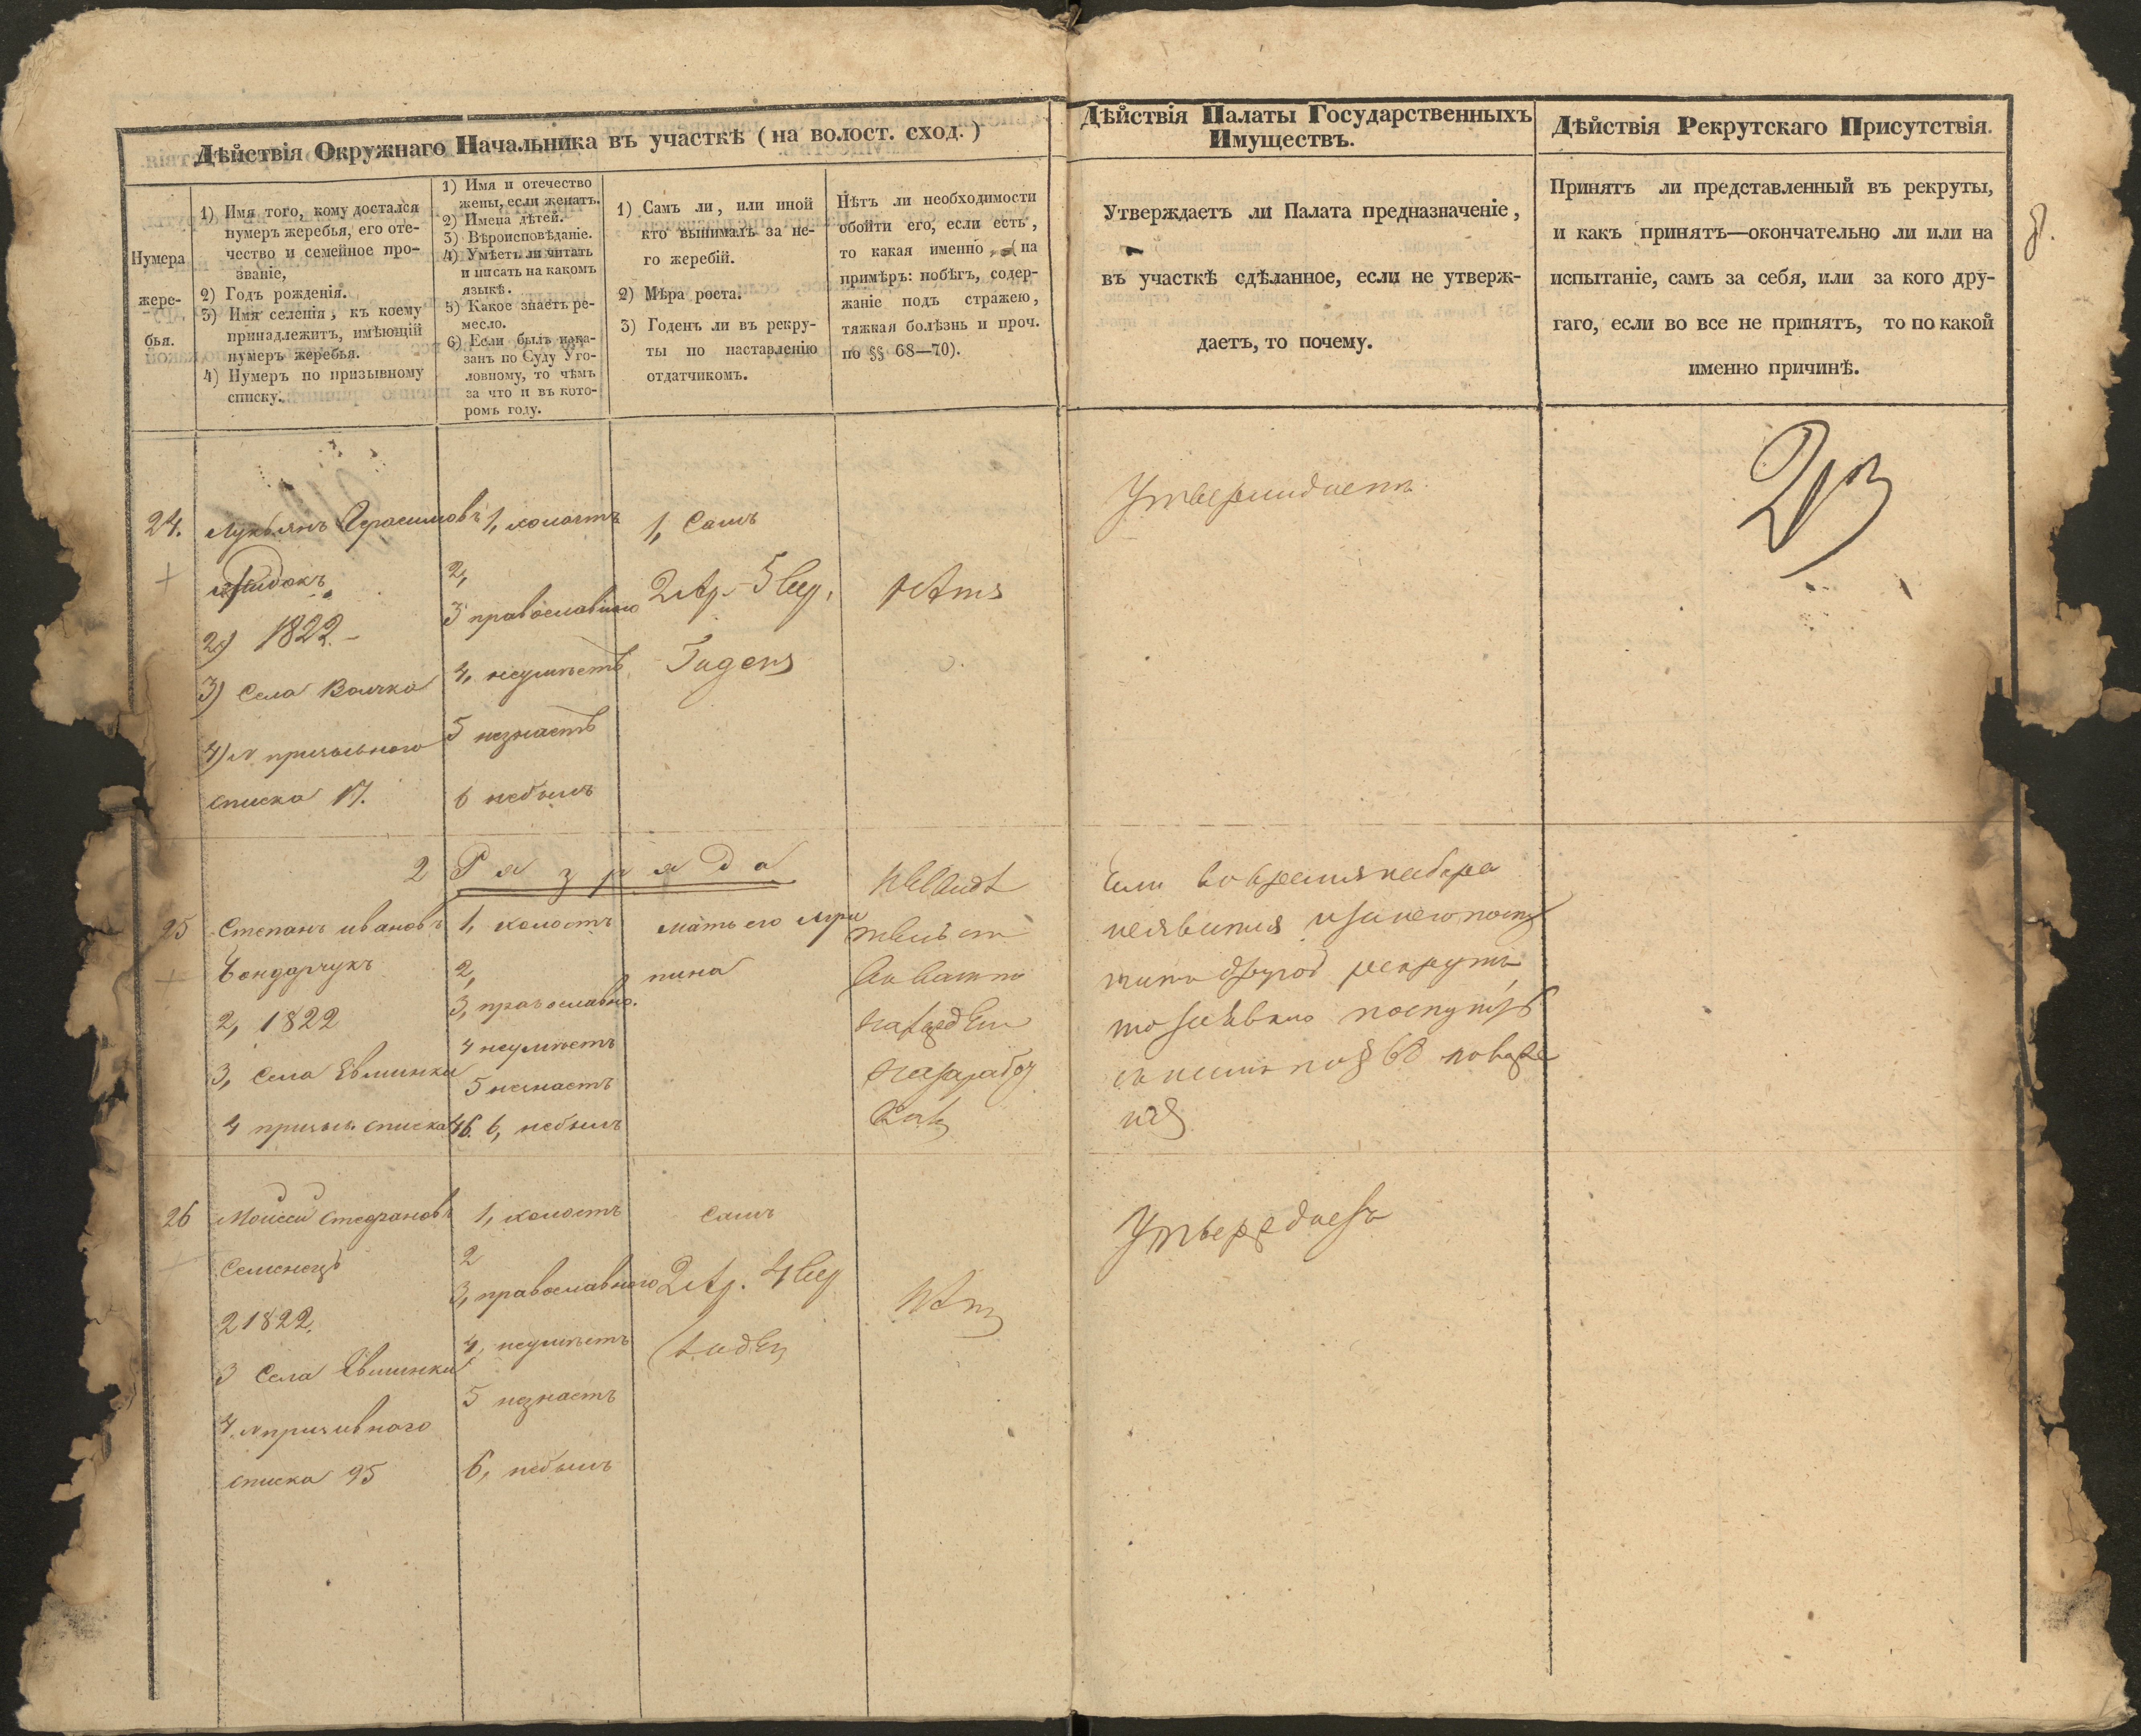 Дѣйствія Окружнаго Начальника въ участкѣ (на волост. сход.)
Нумера
жере-
бья.
1) Имя того, кому достался
нумеръ жеребья, его оте-
чество и семейное про-
званіе,
2) Годъ рожденія.
3) Имя селенія, къ коему
принадлежитъ, имѣющій
нумеръ жеребья.
4) Нумеръ по призывному
списку.
1) Имя и отечество
жены, если женатъ.
2) Имена дѣтей.
3) Вѣроисповѣданіе.
4) Умѣетъ ли читать
и писать на какомъ
языкѣ.
5) Какое знаетъ ре-
месло.
6) Если былъ нака-
занъ по Суду Уго-
ловному, то чѣмъ
за что и въ кото-
ромъ году.
1) Самъ ли, или иной
кто вынималъ за не-
го жеребій.
2) Мѣра роста.
3) Годенъ ли въ рекру-
ты по наставленію
отдатчикомъ.
Нѣтъ ли необходимости
обойти его, если есть,
то какая именно, (на
примѣръ: побѣгъ, содер-
жаніе подъ стражею,
тяжкая болѣзнь и проч.
по §§ 68—70).
Дѣйствія Палаты Государственныхъ
Имуществъ.
Утверждаетъ ли Палата предназначеніе,
въ участкѣ сдѣланное, если не утверж-
даетъ, то почему.
Дѣйствія Рекрутскаго Присутствія.
Принятъ ли представленный въ рекруты,
и какъ принятъ—окончательно ли или на
испытаніе, самъ за себя, или за кого дру-
гаго, если во все не принятъ, то по какой
именно причинѣ.
8.
24.
Лукьянъ Герасимовъ
2) 1822
3) Села Волчка
4) № призывного
списка 17.
1, холостъ
2,
3 православного
4, неумѣетъ
5 незнаетъ
6 небылъ
1, Самъ
2 Ар. 5 вер.
Годенъ
нѣтъ
Утверждаетъ
2 Разряда
25
Степанъ ивановъ
Бондарчукъ
2, 1822
3, Села Евминки
4 призыв. списка 46.
1, холостъ
2,
3, православно.
4 неумѣетъ
5 незнаетъ
6, небылъ
мать его Агри
пина
Если во время набора
неявится и за него посту
питъ другой рекрутъ,
по § 68
26
Моисей Стефановъ
Семенецъ
2 1822.
3 Села Евминки
4 № призивного
списка 95
1, холостъ
2
3, православного
4, неумѣетъ
5 незнаетъ
6, небылъ
Самъ
2 Ар. 4 вер
Годенъ
Нѣтъ
Утверждаетъ